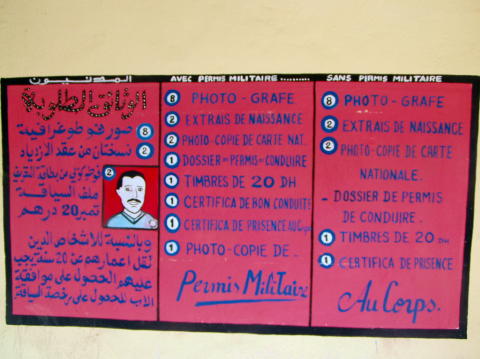 المدنيون
الوثائق المطلوبة
8 صور فوطوغرافية
2 نسختان من عقد الازدياد
2
ملف السياقة
تمبر 20 درهم
وبالنسبة للاشخاص الذين
تقل اعمارهم عن 20 سنة يجب
عليهم الحصول على موافقة
الأب للحصول على رخصة السياقة
AVEC PERMIS MILITAIRE..........
8 PHOTO-GRAFE
2 EXTRAIS DE NAISSANCE
2 PHOTO-COPIE DE CARTE NAT.
1 DOSSIER DE PERMIS DE CONDUIRE
1 TIMBRES DE 20 DH
1 CERTIFICA DE BON CONDUITE
1 CERTIFICA DE PRISENCE AU Corps
1 PHOTO-COPIE DE.
Permis MiliTaire
SANS PERMIS MILITAIRE
8 PHOTO-GRAFE
2 EXTRAIS DE NAISSANCE
2 PHOTO-COPIE DE CARTE
NATIONALE.
- DOSSIER DE PERMIS
DE CONDUIRE.
1 TIMBRES DE 20 DH
1 CERTIFICA DE PRISENCE
Au Corps.